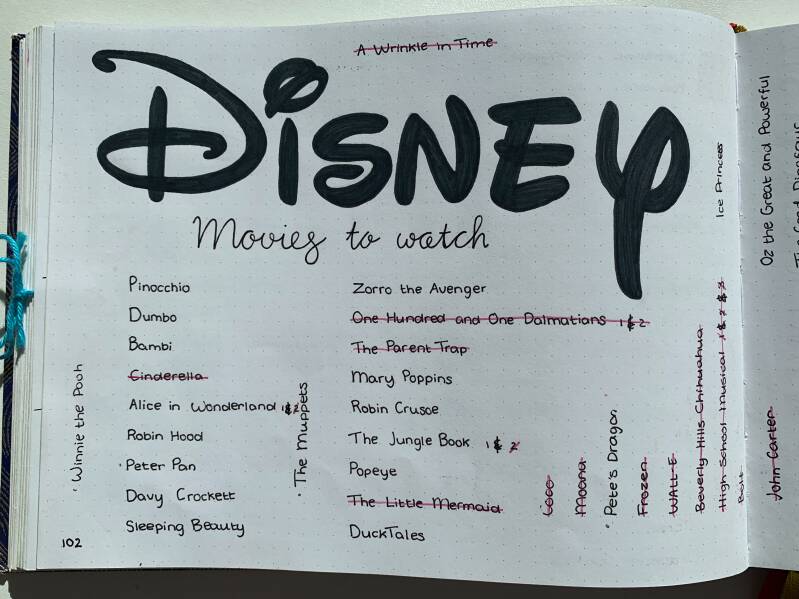 A Wrinkle in Time
Disney
Movies to watch
Pinocchio
Dumbo
Bambi
Cinderella
Alice in Wonderland 1 & 2
Robin Hood
· Peter Pan
Davy Crockett
Sleeping Beauty
· Winnie the Pooh
· The Muppets
Zorro the Avenger
One Hundred and One Dalmatians 1 & 2
The Parent Trap
Mary Poppins
Robin Crusoe
The Jungle Book 1 & 2
Popeye
The Little Mermaid
DuckTales
Coco
Moana
· Pete's Dragon
Frozen
WAll-E
Beverly Hills Chihuahua
High School Musical 1 & 2 & 3
Bolt
Ice Princess
John Carter
Oz the Great and Powerful
102